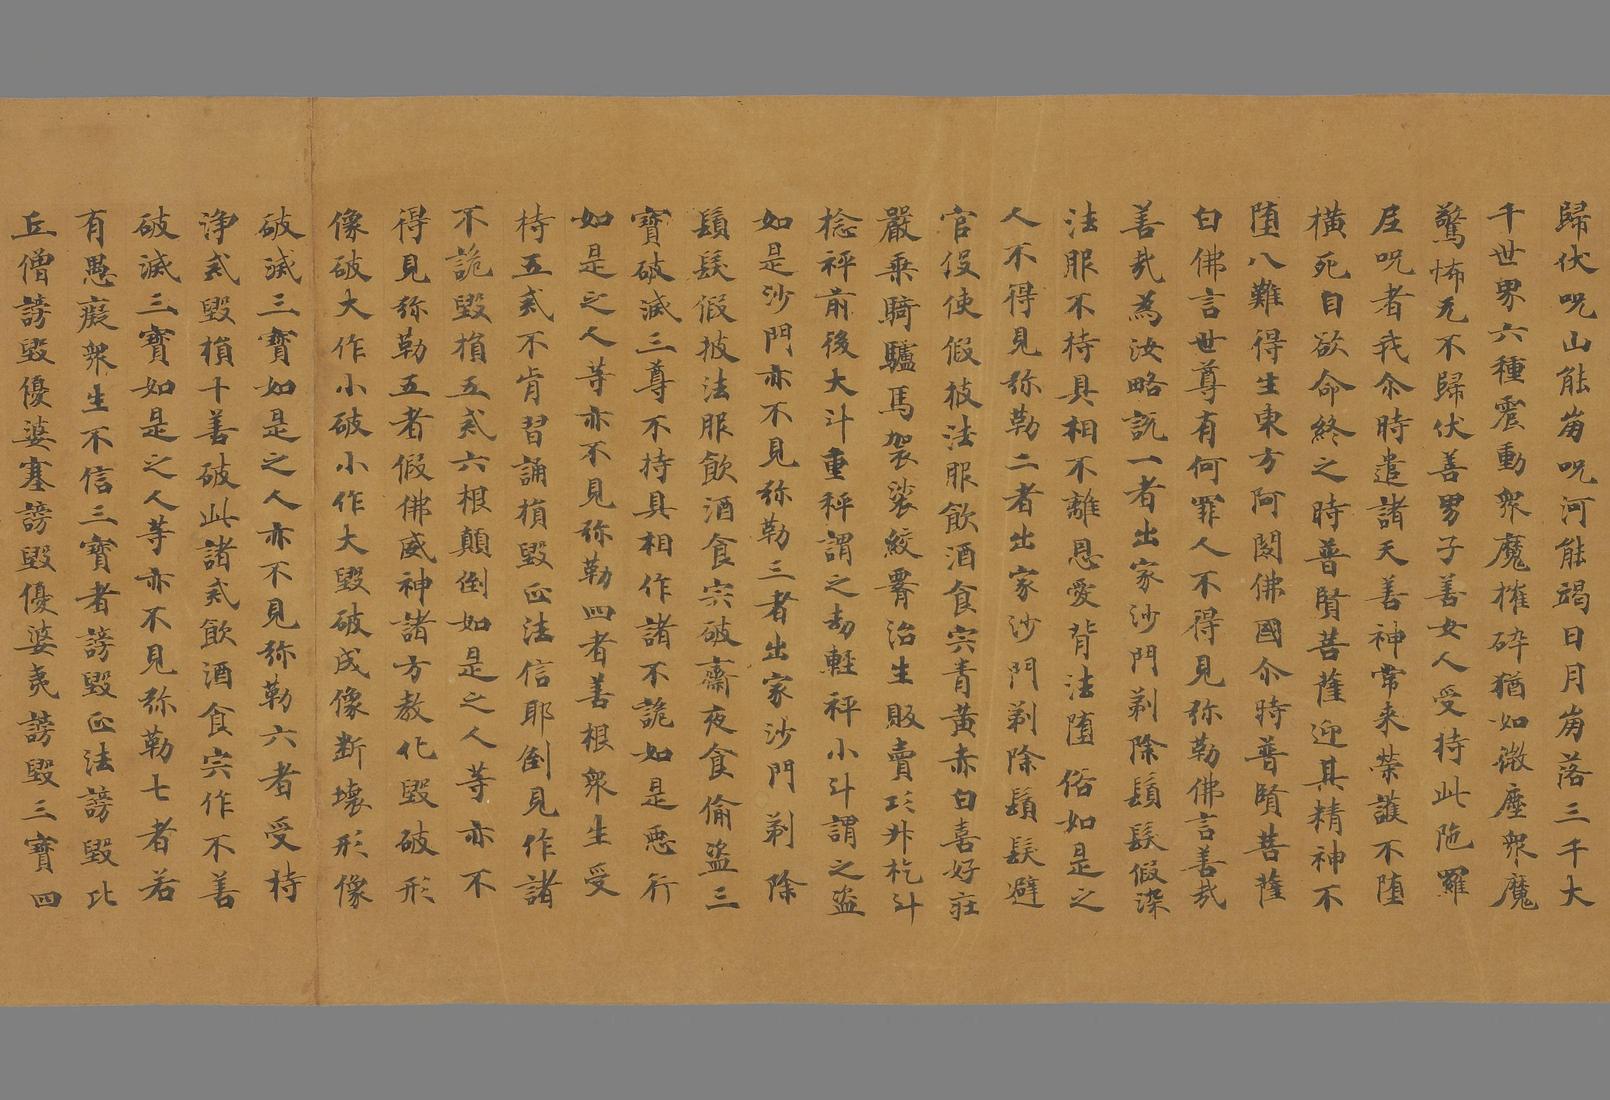 歸伏呪山能崩呪河能竭日月崩落三千大
千世界六種震動衆魔摧碎猶如微塵衆魔
驚怖无不歸伏善男子善女人受持此陁羅
尼呪者我尒時遣諸天善神常来榮護不堕
橫死自欲命終之時普賢菩薩迎其精神不
堕八難得生東方阿閦佛國尒時普賢菩薩
白佛言世尊有何罪人不得見弥勒佛言善㢤
善㢤為汝略説一者出家沙門剃除鬚髮假染
法服不持具相不離恩愛背法堕俗如是之
人不得見弥勒二者出家沙門剃除鬚髮避
官伇使假披法服飲酒食宍青黃赤白喜好莊
嚴乗騎驢馬袈裟絞 治生販賣 升 斗
捻秤前後大斗重秤謂之劫輕秤小斗謂之盜
如是沙門亦不見弥勒三者出家沙門剃除
鬚髮假披法服飲酒食宍破齋夜食偷盜三
寶破滅三尊不持具相作諸不詭如是惡行
如是之人等亦不見弥勒四者善根衆生受
持五戒不肯習誦損毀正法信耶倒見作諸
不詭毀損五戒六根顛倒如是之人等亦不
得見弥勒五者假佛威神諸方教化毀破形
像破大作小破小作大毀破成像断壞形像
破滅三寶如是之人亦不見弥勒六者受持
浄戒毀損十善破此諸戒飲酒食宍作不善
破滅三寶如是之人等亦不見弥勒七者若
有愚癡衆生不信三寶者謗毀正法謗毀比
丘僧謗毀優婆塞謗毀優婆夷謗毀三寶四